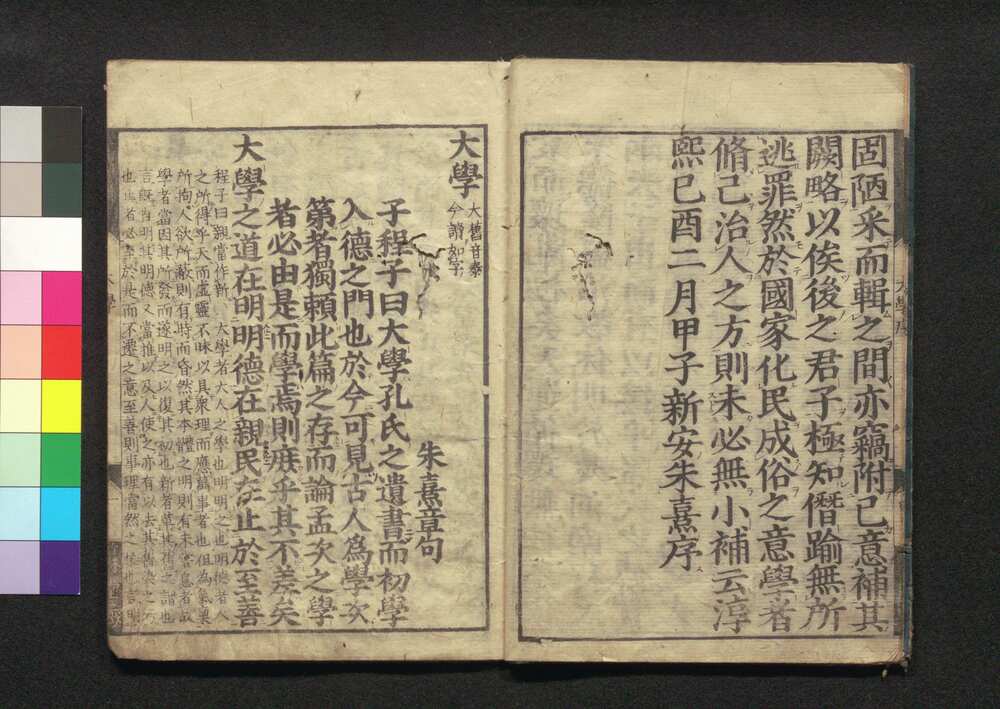 固陋采而輯之間亦竊附已意補其
闕略以俟後之君子極知僭踰無所
逃罪然於國家化民成俗之意學者
脩己治人之方則未必無小補云淳
熙己酉二月甲子新安朱熹序
大學序
大學
大舊音泰
今讀如字
朱熹章句
子程子曰大學孔氏之遺書而初學
入德之門也於今可見古人爲學次
第者獨賴此篇之存而論孟次之學
者必由是而學焉則庶乎其不差矣
大學之道在明明德在親民在止於至善
程子曰親當作新 大學者大人之學也明明之也明德者人
之所得乎天而虛靈不昧以具衆理而應萬事者也但為氣稟
所拘人欲所蔽則有時而昏然其本體之明則有未嘗息者故
學者當因其所發而遂明之以復其初也新者革其舊之謂也
言既自明其明德又當推以及人使之亦有以去其舊染之污
也止者必至於是而不遷之意至善則事理當然之極也言明